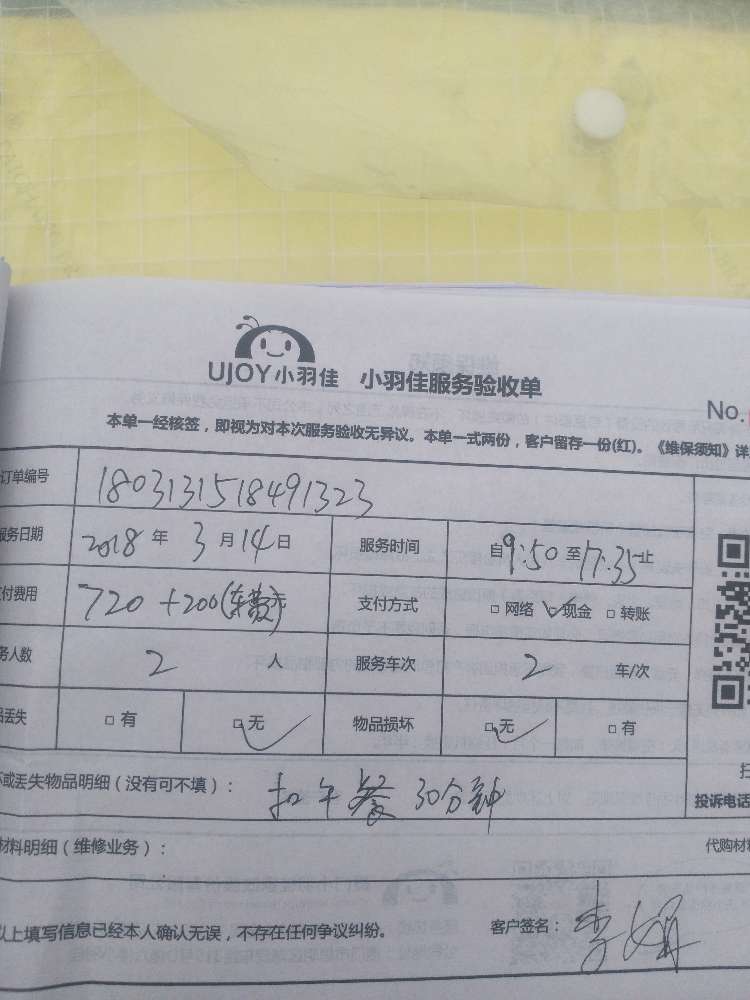 UJOY小羽佳 小羽佳服务验收单
No.
本单一经核签，即视为对本次服务验收无异议。本单一式两份，客户留存一份(红)。《维保须知》详
订单编号 1803131518491323
服务日期 2018 年 3 月 14 日 服务时间 自 9:50 至 17:35 止
付费用 720 + 200(车费)元 支付方式 □ 网络 □ 现金 □ 转账
务人数 2 人 服务车次 2 车/次
丢失 □ 有 □ 无 物品损坏 □ 无 □ 有
坏或丢失物品明细（没有可不填）： 扣午餐30分钟
投诉电话
材料明细（维修业务）： 代购材料
以上填写信息已经本人确认无误，不存在任何争议纠纷。 客户签名：李娟